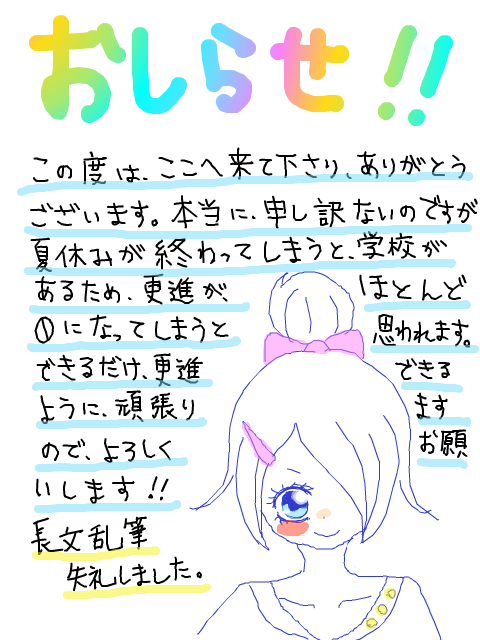 おしらせ!!
この度は、ここへ来て下さり、ありがとう
ございます。本当に、申し訳ないのですが
夏休みが終わってしまうと、学校が
あるため、更進が、ほとんど
①になってしまうと思われます。
できるだけ、更進できる
ように、頑張ります
ので、よろしくお願
いします!!
長文乱筆
失礼しました。